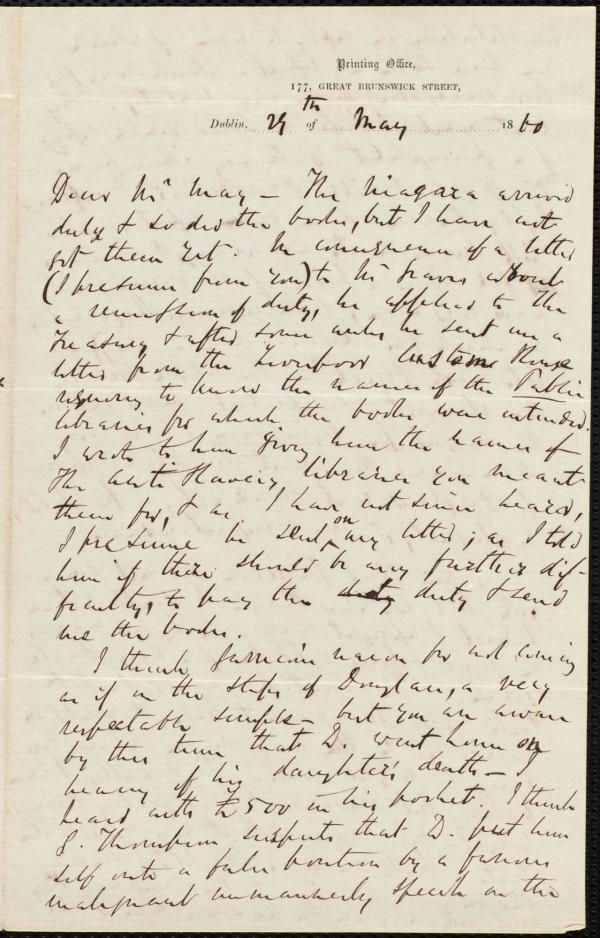 Printing Office,
177, GREAT BRUNSWICK STREET,
Dublin, 29th of May 1860
Dear Mr May — The Niagara arrived
duly & so did the books, but I have not
got them yet. In consequence of a letter
(I presume from you) to Mr Graves about
a remission of duty, he applied to the
Treasury & after some weeks he sent me a
letter from the Liverpool Custom House
requiring to know the names of the Public
libraries for which the books were intended.
I wrote to him giving him the names of
the Anti Slavery libraries you meant
them for, & as I have not since heard,
I presume he sent on my letter; as I told
him if there should be any further dif-
ficulty, to pay the duty & send
me the books.
I think Garrison's reason for not coming
as if in the steps of Douglass, a very
respectable scruple — but you are aware
by this time that D. went home on
hearing of his daughter's death — I
heard with £500 in his pocket. I think
G. Thompson suspects that D. put him
self into a false position by a furious
malignant unmannerly speech on the